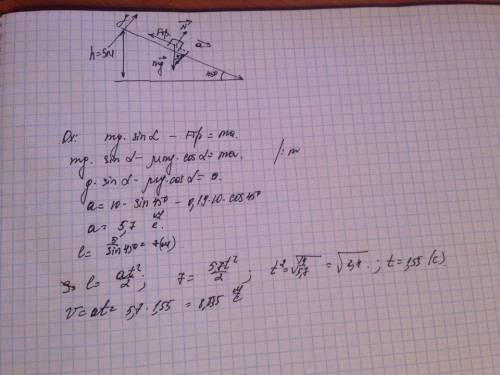 y
N
Fтр
a
h=5м
mg
45°
Ox: mg · sinα − Fтр = ma.
mg · sinα − μmg · cosα = ma. /: m
g · sinα − μg · cosα = a.
a = 10 · sin45° − 0,19 · 10 · cos45°
a = 5,7 м/с²
l = 5/sin45° = 7(м)
l = at²/2 ; 7 = 5,7t²/2 ; t² = √14/5,7 = √2,4 . ; t = 1,55 (с)
V = at = 5,7 · 1,55 = 8,835 м/с